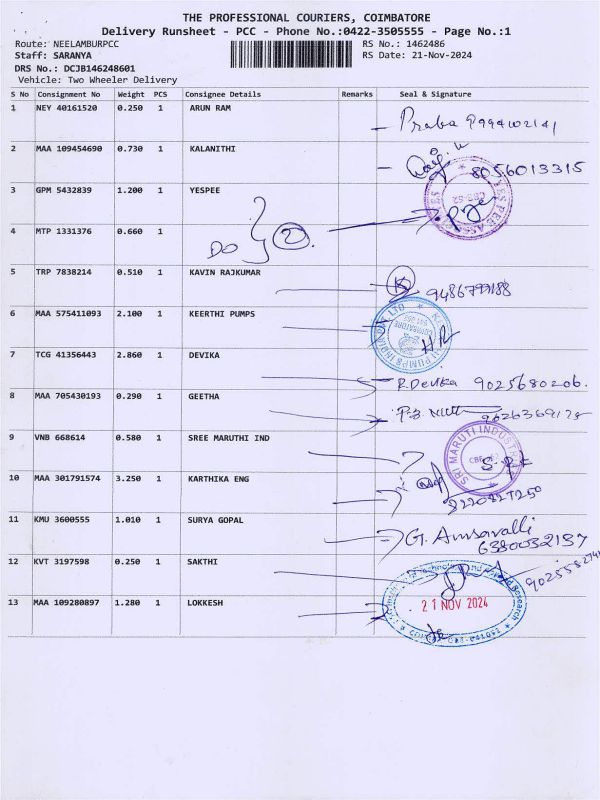 THE PROFESSIONAL COURIERS, COIMBATORE
Delivery Runsheet - PCC - Phone No.:0422-3505555 - Page No.:1
Route: NEELAMBURPCC RS No.: 1462486
Staff: SARANYA RS Date: 21-Nov-2024
DRS No.: DCJB146248601
Vehicle: Two Wheeler Delivery
S No Consignment No Weight PCS Consignee Details Remarks Seal & Signature
1 NEY 40161520 0.250 1 ARUN RAM
Praba 9994102141
2 MAA 109454690 0.730 1 KALANITHI
8056013315
3 GPM 5432839 1.200 1 YESPEE
4 MTP 1331376 0.660 1
DO 2
5 TRP 7838214 0.510 1 KAVIN RAJKUMAR
K
6 MAA 575411093 2.100 1 KEERTHI PUMPS
7 TCG 41356443 2.860 1 DEVIKA
R. Devika 9025680206.
8 MAA 705430193 0.290 1 GEETHA
9 VNB 668614 0.580 1 SREE MARUTHI IND
SRI MARUTI INDUSTR
10 MAA 301791574 3.250 1 KARTHIKA ENG
11 KMU 3600555 1.010 1 SURYA GOPAL
G. Amsavalli
6380032197
12 KVT 3197598 0.250 1 SAKTHI
13 MAA 109280897 1.280 1 LOKKESH
21 NOV 2024